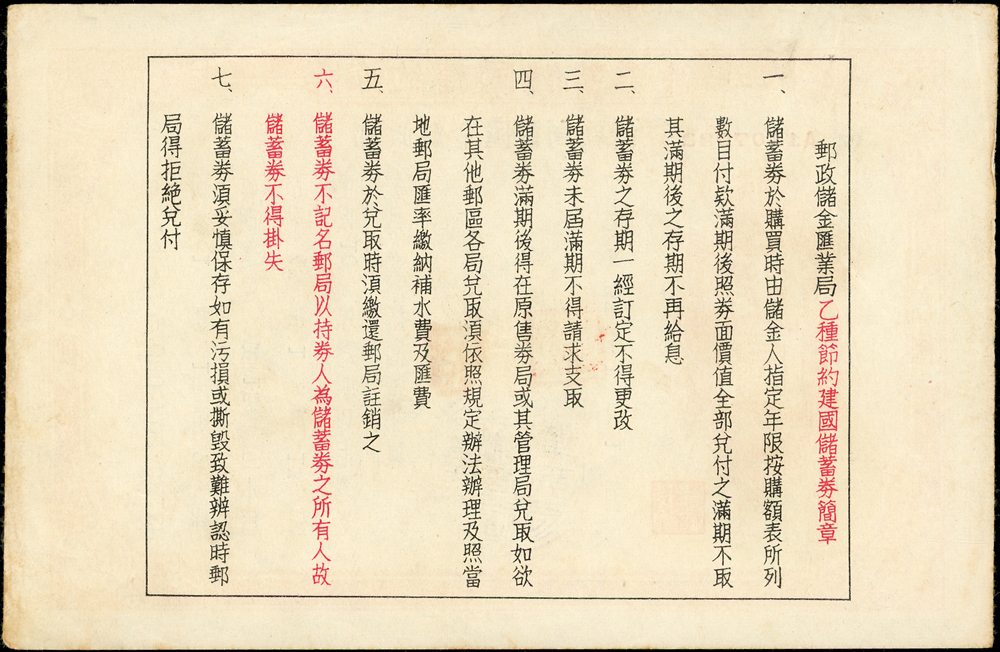 郵政儲金匯業局乙種節約建國儲蓄劵簡章
一、儲蓄劵於購買時由儲金人指定年限按購額表所列
數目付款滿期後照劵面價值全部兌付之滿期不取
其滿期後之存期不再給息
二、儲蓄劵之存期一經訂定不得更改
三、儲蓄劵未屆滿期不得請求支取
四、儲蓄劵滿期後得在原售劵局或其管理局兌取如欲
在其他郵區各局兌取須依照規定辦法辦理及照當
地郵局匯率繳納補水費及匯費
五、儲蓄劵於兌取時須繳還郵局註銷之
六、儲蓄劵不記名郵局以持劵人為儲蓄劵之所有人故
儲蓄劵不得掛失
七、儲蓄劵須妥慎保存如有污損或撕毀致難辨認時郵
局得拒絕兌付